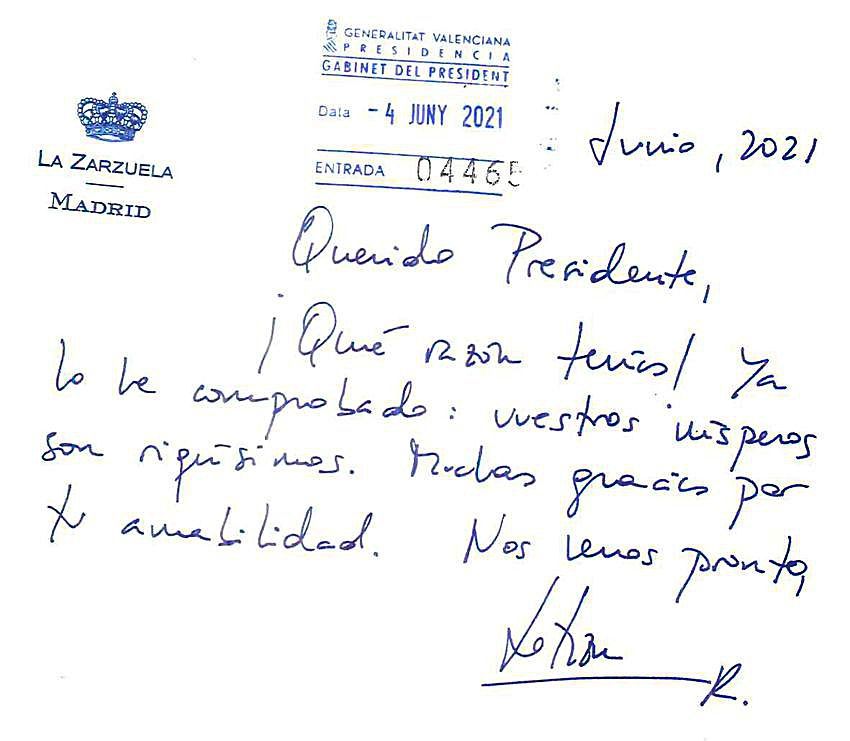 GENERALITAT VALENCIANA
PRESIDENCIA
GABINET DEL PRESIDENT
Data - 4 JUNY 2021
ENTRADA 04465
LA ZARZUELA
MADRID
Junio, 2021
Querido Presidente,
¡Qué razón tenías! Ya
lo he comprobado: vuestros nísperos
son riquísimos. Muchas gracias por
tu amabilidad. Nos vemos pronto,
Letizia
R.